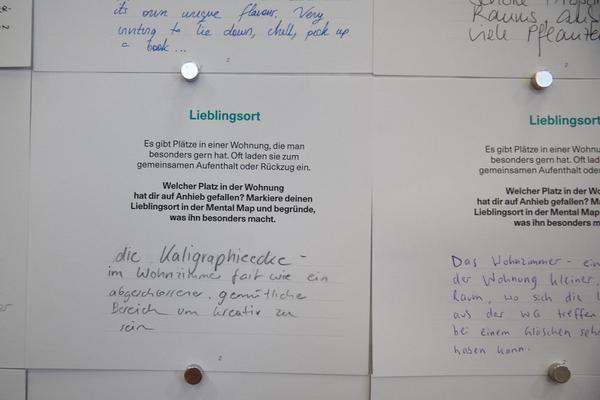 its own unique flavour. Very
inviting to lie down, chill, pick up
a book...
2
Raums, aus
viele Pflanzen
2
Lieblingsort
Es gibt Plätze in einer Wohnung, die man
besonders gern hat. Oft laden sie zum
gemeinsamen Aufenthalt oder Rückzug ein.
Welcher Platz in der Wohnung
hat dir auf Anhieb gefallen? Markiere deinen
Lieblingsort in der Mental Map und begründe,
was ihn besonders macht.
die Kaligraphieecke -
im Wohnzimmer fast wie ein
abgeschlossener, gemütlicher
Bereich um kreativ zu
sein
2
Lieblingsort
Es gibt Plätze in einer Wohn
besonders gern hat. Oft
gemeinsamen Aufenthalt ode
Welcher Platz in der Wo
hat dir auf Anhieb gefallen? M
Lieblingsort in der Mental Ma
was ihn besonders m
Das Wohnzimmer - ein
der Wohnung kleiner,
Raum, wo sich die
aus der WG treffen
bei einem Gläschen
haben kann.
2